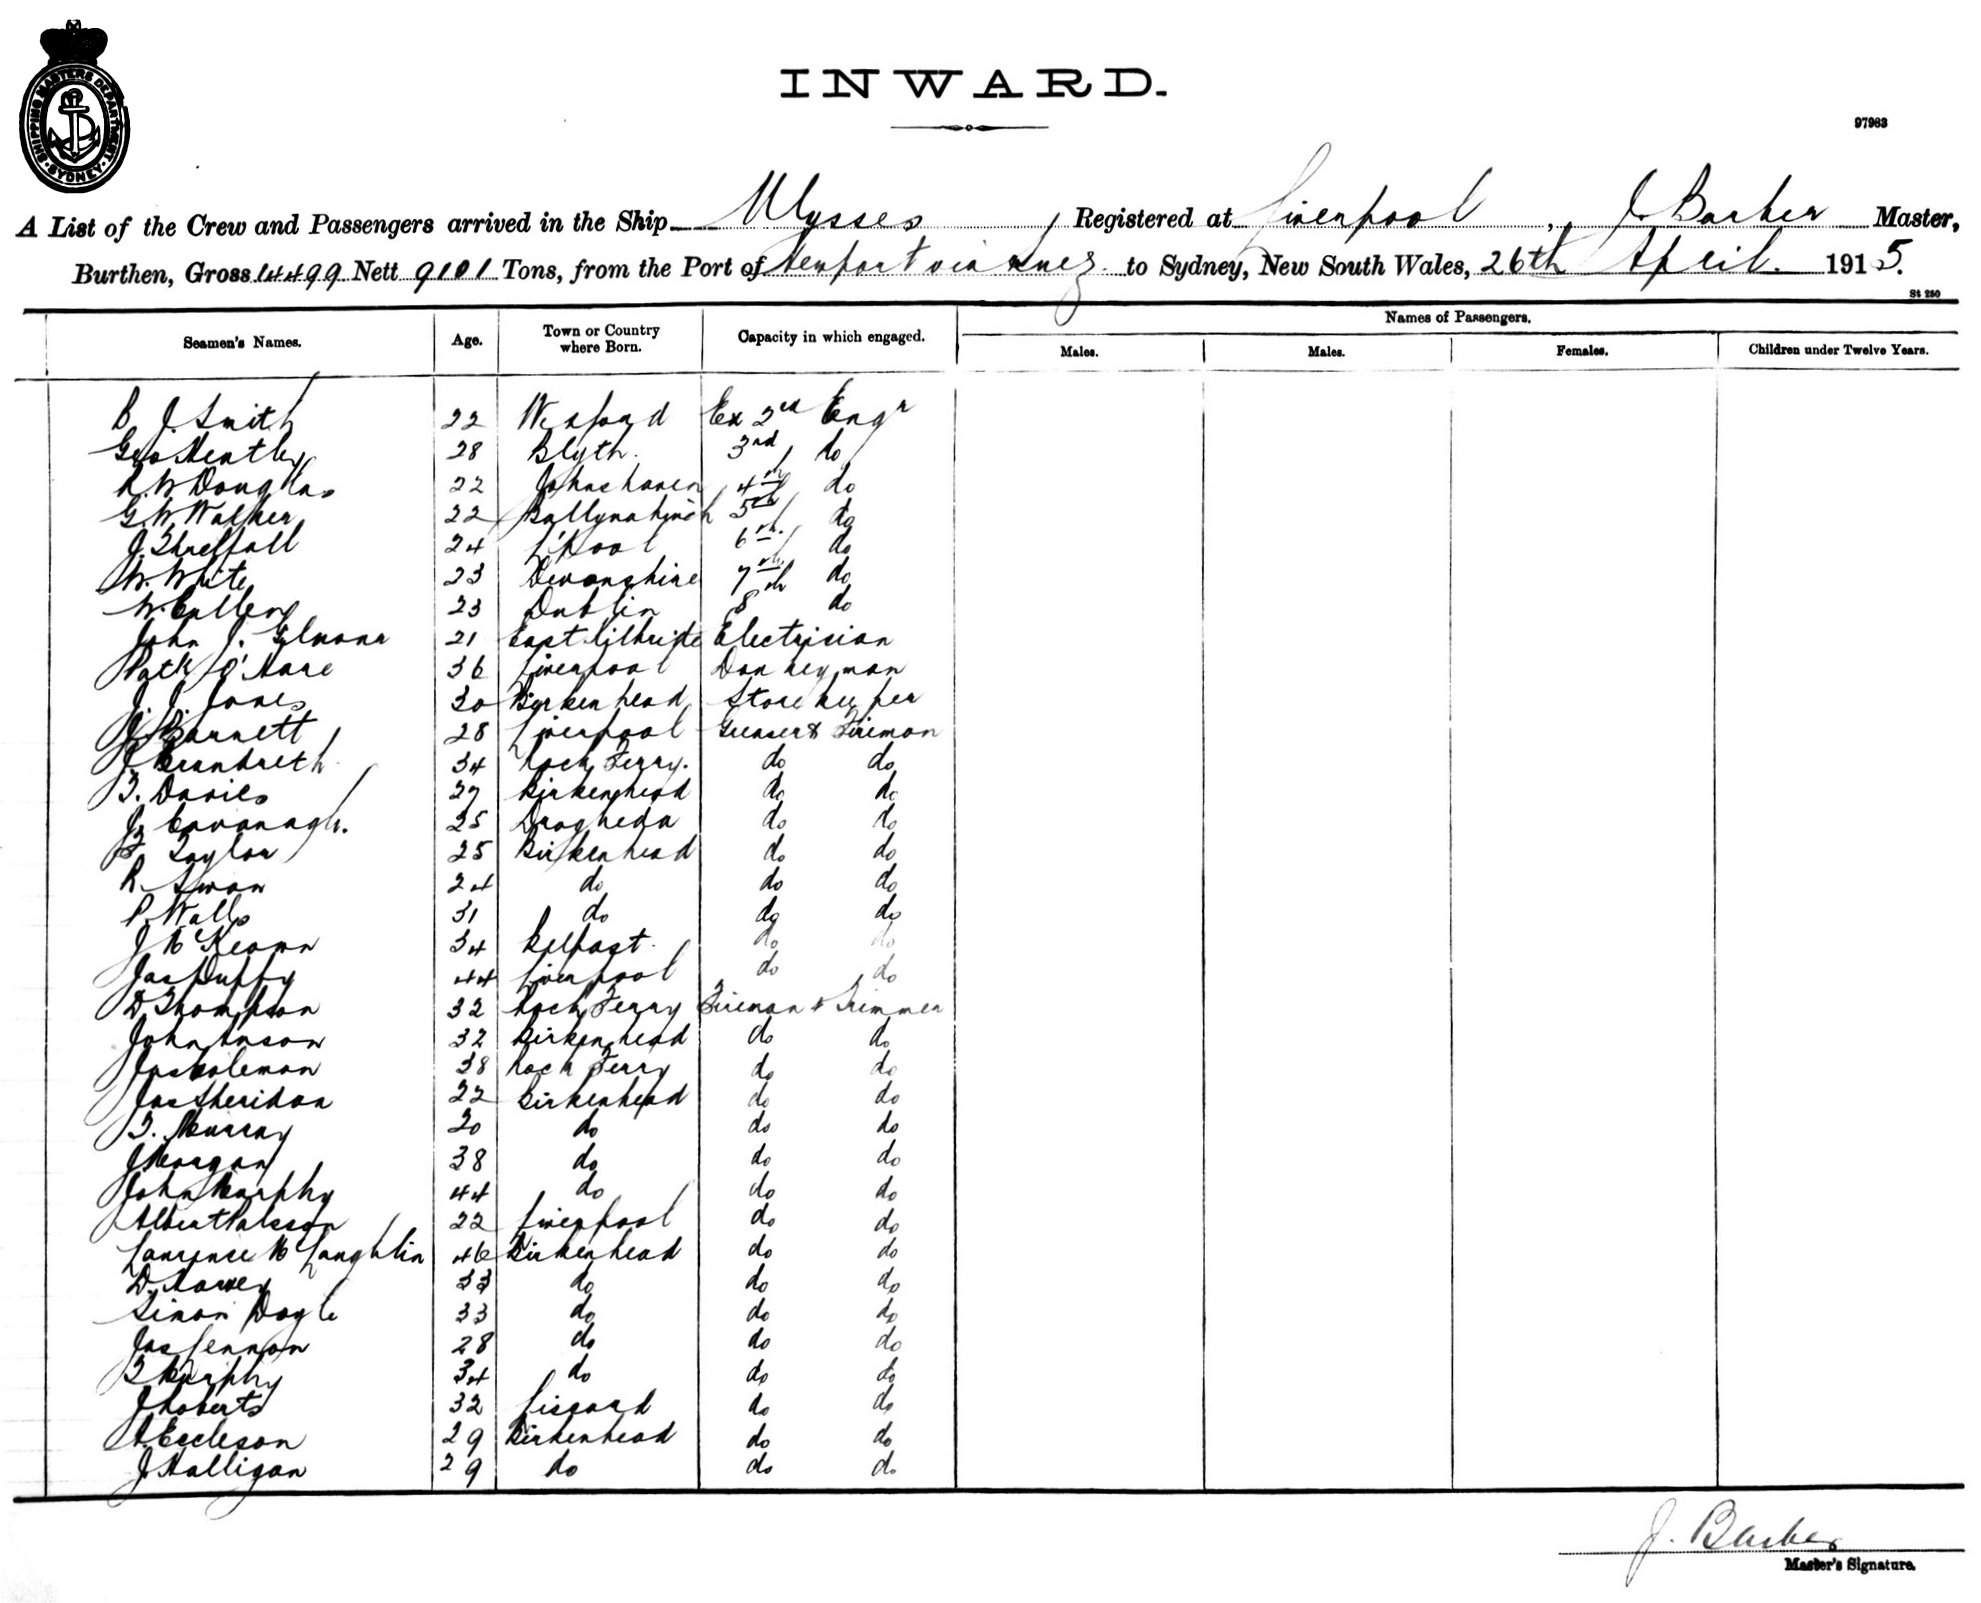 SHIPPING MASTERS DEPARTMENT · SYDNEY ·
INWARD.
97983
A List of the Crew and Passengers arrived in the Ship Ulysses, Registered at Liverpool, J. Barber Master,
Burthen, Gross 14499 Nett 9101 Tons, from the Port of Newport via Suez to Sydney, New South Wales, 26th April. 1915.
St 250
Names of Passengers.
Seamen's Names. Age. Town or Country where Born. Capacity in which engaged. Males. Males. Females. Children under Twelve Years.
B. J. Smith 22 Wexford Ex 2nd Engr
Geo Heatley 28 Blyth. 3rd do
R. W Douglas 22 Johnshaven 4th do
G. W. Walker 22 Ballynahinch 5th do
J. Threlfall 24 L'pool 6th do
W. White 23 Devonshire 7th do
W. Cullen 23 Dublin 8th do
John J. Gilmour 21 East Kilbride Electrician
Patk O'Hare 36 Liverpool Donkeyman
J. J. Jones 30 Birkenhead Storekeeper
J. Barnett 28 Liverpool Greaser & Fireman
J. Brandreth 34 Rock Ferry. do do
T. Davies 27 Birkenhead do do
J. Cavanagh. 25 Drogheda do do
Taylor 25 Birkenhead do do
R. Swan 24 do do do
P. Walls 31 do do do
J McKeown 34 Belfast. do do
Jas Duffy 44 Liverpool do do
D. Thompson 32 Rock Ferry Fireman & Trimmer
John Anson 32 Birkenhead do do
Jas Coleman 38 Rock Ferry do do
Jas Sheridan 22 Birkenhead do do
T. Murray 20 do do do
J Morgan 38 do do do
John Murphy 44 do do do
Albert 22 Liverpool do do
Laurence McLaughlin 46 Birkenhead do do
D. Harvey 33 do do do
Simon Doyle 33 do do do
Jas Lennon 28 do do do
T Murphy 34 do do do
J Roberts 32 Liscard do do
A. Eccleson 29 Birkenhead do do
J Halligan 29 do do do
J. Barber
Master's Signature.